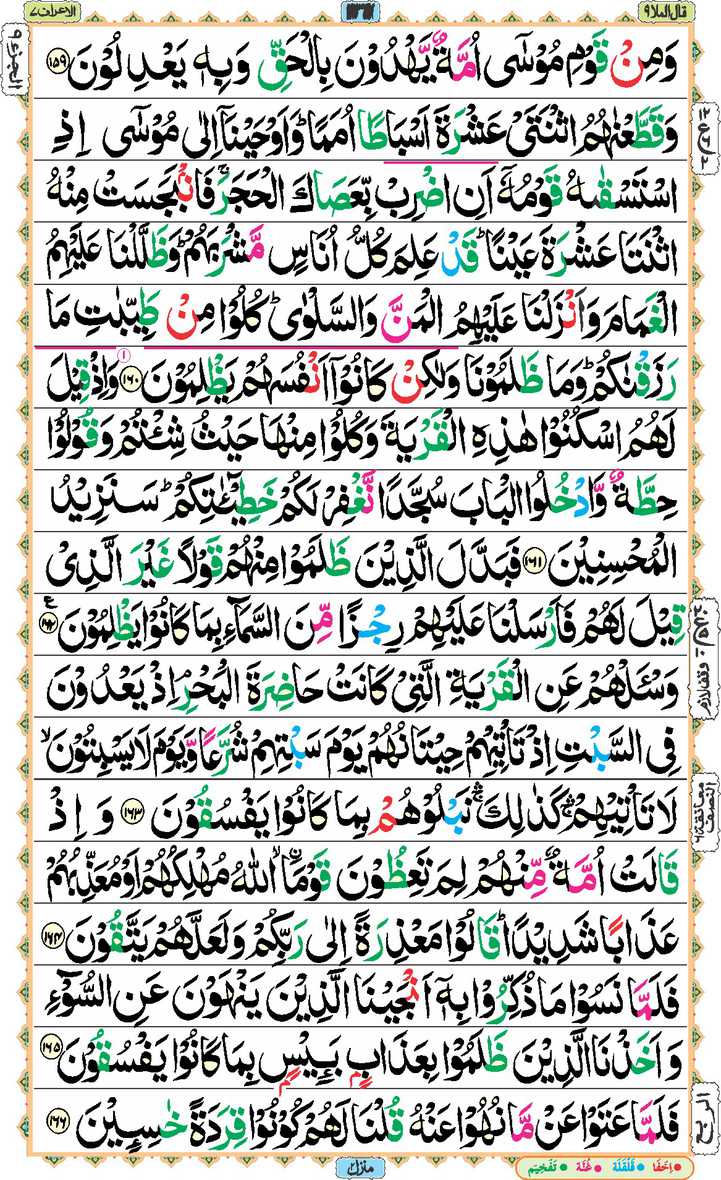 قال الملا ٩
١٣٦
الاعراف ٧
وَمِنْ قَوْمِ مُوْسٰٓى اُمَّةٌ يَّهْدُوْنَ بِالْحَقِّ وَبِهٖ يَعْدِلُوْنَ ۝١٥٩
وَقَطَّعْنٰهُمُ اثْنَتَيْ عَشْرَةَ اَسْبَاطًا اُمَمًا ؕ وَاَوْحَيْنَاۤ اِلٰى مُوْسٰٓى اِذِ
اسْتَسْقٰىهُ قَوْمُهٗۤ اَنِ اضْرِبْ بِّعَصَاكَ الْحَجَرَ ۚ فَانْۢبَجَسَتْ مِنْهُ
اثْنَتَا عَشْرَةَ عَيْنًا ؕ قَدْ عَلِمَ كُلُّ اُنَاسٍ مَّشْرَبَهُمْ ؕ وَظَلَّلْنَا عَلَيْهِمُ
الْغَمَامَ وَاَنْزَلْنَا عَلَيْهِمُ الْمَنَّ وَالسَّلْوٰى ؕ كُلُوْا مِنْ طَيِّبٰتِ مَا
رَزَقْنٰكُمْ ؕ وَمَا ظَلَمُوْنَا وَلٰكِنْ كَانُوْۤا اَنْفُسَهُمْ يَظْلِمُوْنَ ۝١٦٠ وَاِذْ قِيْلَ
لَهُمُ اسْكُنُوْا هٰذِهِ الْقَرْيَةَ وَكُلُوْا مِنْهَا حَيْثُ شِئْتُمْ وَقُوْلُوْا
حِطَّةٌ وَّادْخُلُوا الْبَابَ سُجَّدًا نَّغْفِرْ لَكُمْ خَطِيْٓـٰٔتِكُمْ ؕ سَنَزِيْدُ
الْمُحْسِنِيْنَ ۝١٦١ فَبَدَّلَ الَّذِيْنَ ظَلَمُوْا مِنْهُمْ قَوْلًا غَيْرَ الَّذِيْ
قِيْلَ لَهُمْ فَاَرْسَلْنَا عَلَيْهِمْ رِجْزًا مِّنَ السَّمَآءِ بِمَا كَانُوْا يَظْلِمُوْنَ ۝١٦٢ ع
وَسْـَٔلْهُمْ عَنِ الْقَرْيَةِ الَّتِيْ كَانَتْ حَاضِرَةَ الْبَحْرِ ۘ اِذْ يَعْدُوْنَ
فِي السَّبْتِ اِذْ تَاْتِيْهِمْ حِيْتَانُهُمْ يَوْمَ سَبْتِهِمْ شُرَّعًا وَّيَوْمَ لَا يَسْبِتُوْنَ ۙ
لَا تَاْتِيْهِمْ ۛۚ كَذٰلِكَ ۛۚ نَبْلُوْهُمْ بِمَا كَانُوْا يَفْسُقُوْنَ ۝١٦٣ وَاِذْ
قَالَتْ اُمَّةٌ مِّنْهُمْ لِمَ تَعِظُوْنَ قَوْمَاۨ ۙ اللّٰهُ مُهْلِكُهُمْ اَوْ مُعَذِّبُهُمْ
عَذَابًا شَدِيْدًا ؕ قَالُوْا مَعْذِرَةً اِلٰى رَبِّكُمْ وَلَعَلَّهُمْ يَتَّقُوْنَ ۝١٦٤
فَلَمَّا نَسُوْا مَا ذُكِّرُوْا بِهٖۤ اَنْجَيْنَا الَّذِيْنَ يَنْهَوْنَ عَنِ السُّوْٓءِ
وَاَخَذْنَا الَّذِيْنَ ظَلَمُوْا بِعَذَابٍۭ بَـِٔيْسٍۭ بِمَا كَانُوْا يَفْسُقُوْنَ ۝١٦٥
فَلَمَّا عَتَوْا عَنْ مَّا نُهُوْا عَنْهُ قُلْنَا لَهُمْ كُوْنُوْا قِرَدَةً خٰسِـِٕيْنَ ۝١٦٦
وقف لازم
معانقة ٦
النصف
الربع
منزل ٢
اِخفَا • قَلْقَلَه • غُنَّه • تَفْخِيْم •